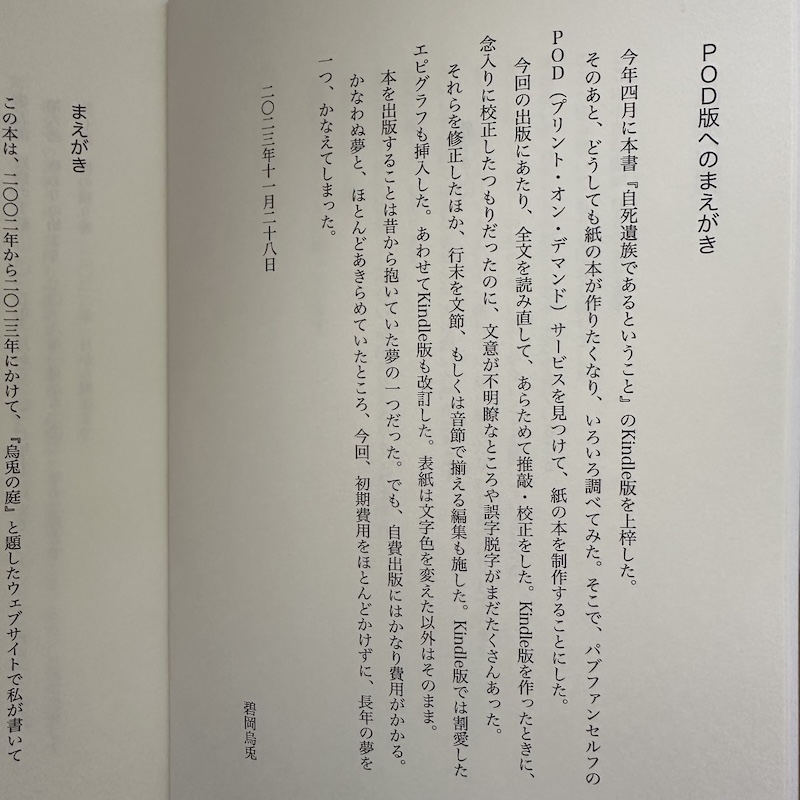 POD版へのまえがき
今年四月に本書『自死遺族であるということ』のKindle版を上梓した。
そのあと、どうしても紙の本が作りたくなり、いろいろ調べてみた。そこで、パブファンセルフの
POD（プリント・オン・デマンド）サービスを見つけて、紙の本を制作することにした。
今回の出版にあたり、全文を読み直して、あらためて推敲・校正をした。Kindle版を作ったときに、
念入りに校正したつもりだったのに、文意が不明瞭なところや誤字脱字がまだたくさんあった。
それらを修正したほか、行末を文節、もしくは音節で揃える編集も施した。Kindle版では割愛した
エピグラフも挿入した。あわせてKindle版も改訂した。表紙は文字色を変えた以外はそのまま。
本を出版することは昔から抱いていた夢の一つだった。でも、自費出版にはかなり費用がかかる。
かなわぬ夢と、ほとんどあきらめていたところ、今回、初期費用をほとんどかけずに、長年の夢を
一つ、かなえてしまった。
二〇二三年十一月二十八日
碧岡烏兎
まえがき
この本は、二〇〇二年から二〇二三年にかけて、『烏兎の庭』と題したウェブサイトで私が書いて